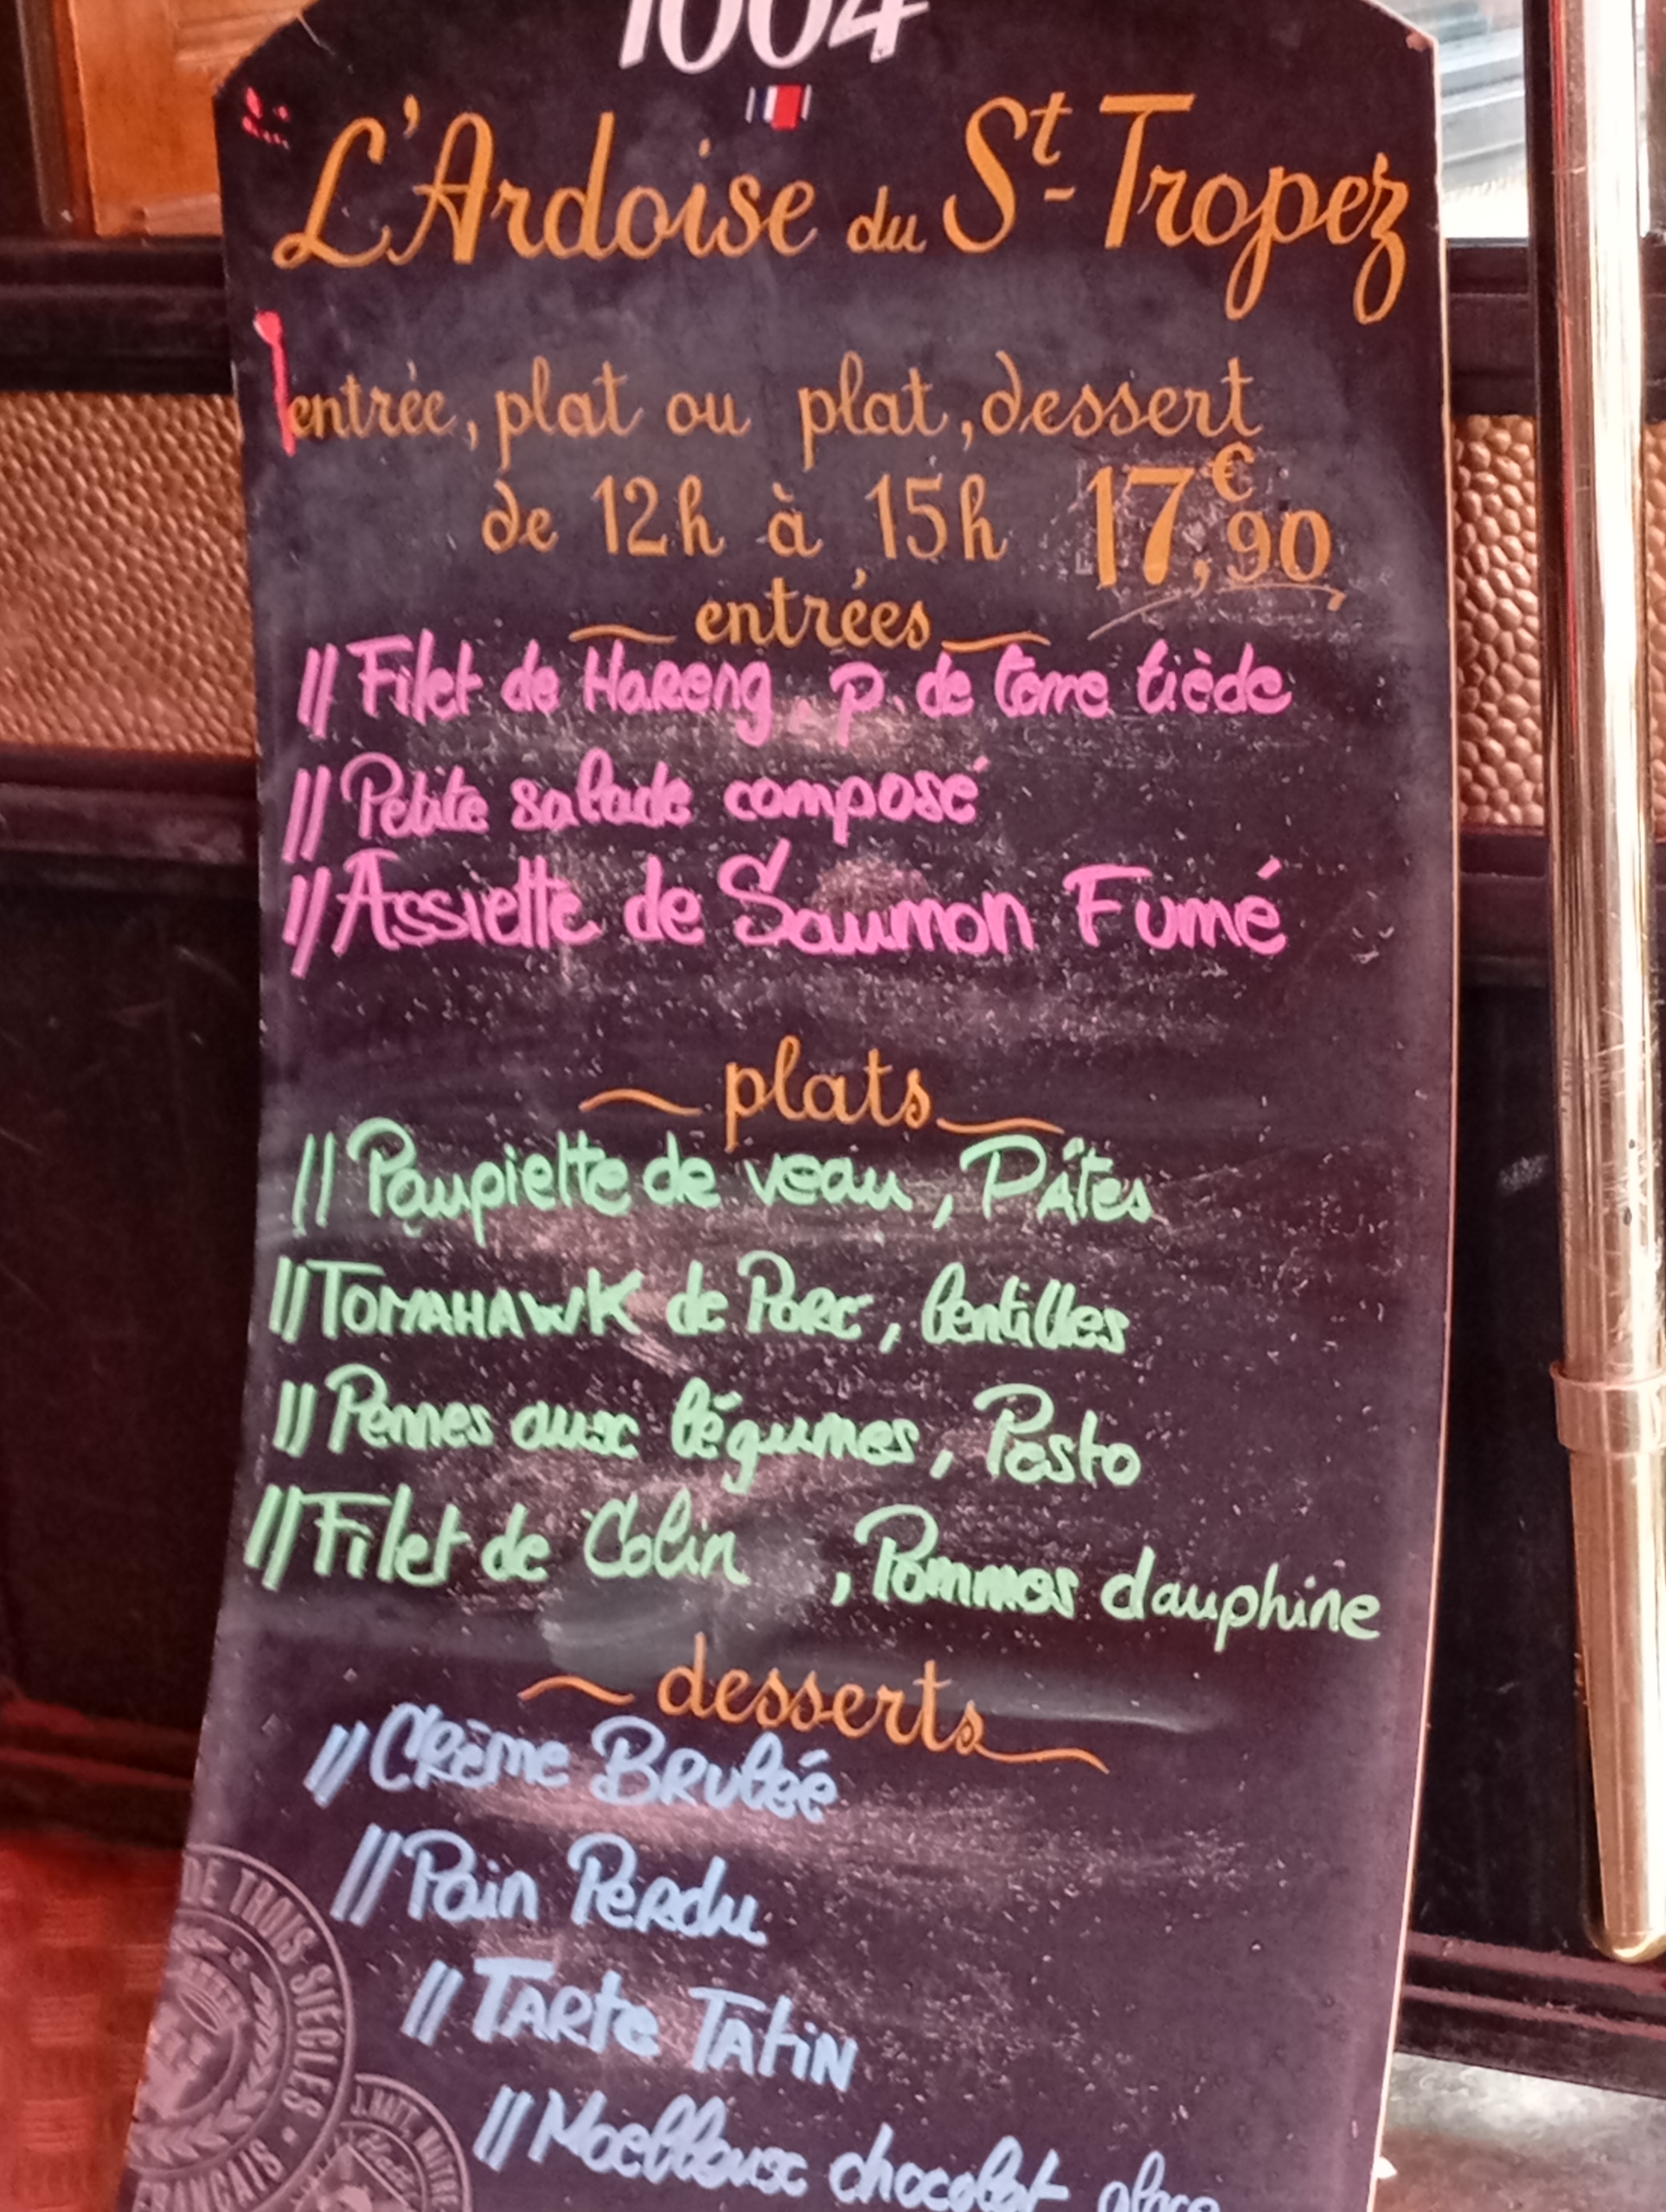 1664
L'Ardoise du St-Tropez
entrée, plat ou plat, dessert
de 12h à 15h 17,€90
entrées
// Filet de Hareng, p. de terre tiède
// Petite salade composé
// Assiette de Saumon Fumé
plats
// Paupiette de veau, Pâtes
// TOMAHAWK de Porc, lentilles
// Pennes aux légumes, Pesto
// Filet de Colin , Pommes dauphine
desserts
// Crème Brulée
// Pain Perdu
// Tarte Tatin
// Moelleux chocolat glace
DE TROIS SIECLES •
FRANÇAIS